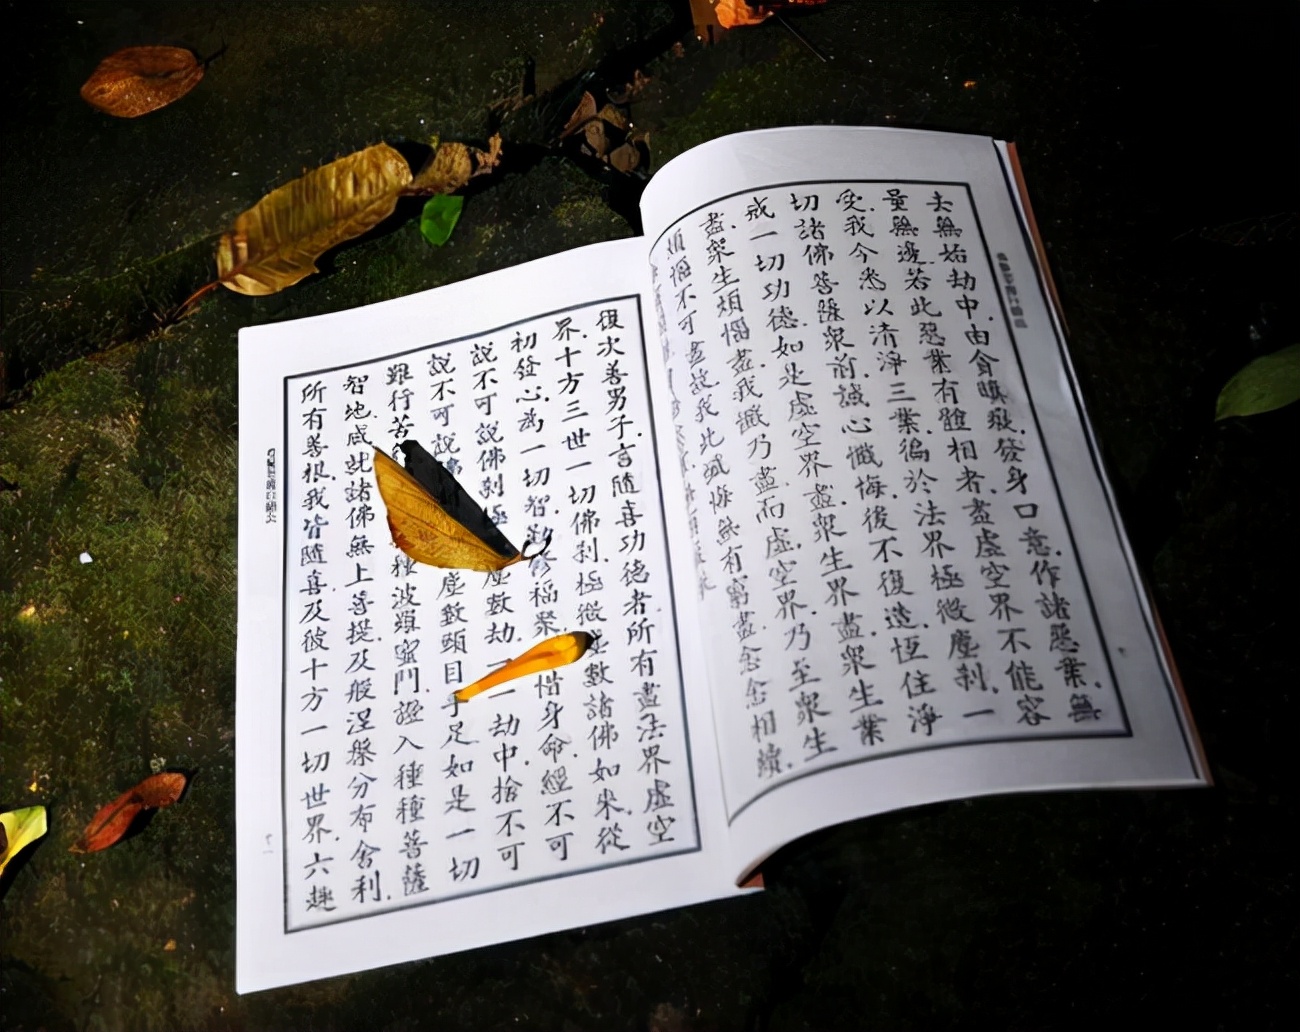 去無始劫中.由貪瞋癡.發身口意.作諸惡業.無
量無邊.若此惡業有體相者.盡虛空界不能容
受.我今悉以清淨三業.徧於法界極微塵刹.一
切諸佛菩薩衆前.誠心懺悔.後不復造.恆住淨
戒一切功德.如是虛空界盡.衆生界盡.衆生業
盡.衆生煩惱盡.我懺乃盡.而虛空界.乃至衆生
煩惱不可盡故.我此懺悔無有窮盡.念念相續.
復次善男子.言隨喜功德者.所有盡法界虛空
界.十方三世一切佛刹.極微塵數諸佛如來.從
初發心.為一切智.勤修福聚.惜身命.經不可
說不可說佛刹極微塵數劫.一一劫中.捨不可
說不可說佛塵數頭目手足.如是一切
難行苦種波羅蜜門.證入種種菩薩
智地.成就諸佛無上菩提.及般涅槃.分布舍利.
所有善根.我皆隨喜.及彼十方一切世界.六趣